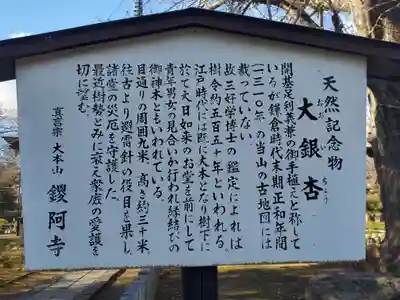 天然記念物
大銀杏
おおいちょう
開基足利義兼の御手植えと称して
いるが鎌倉時代末期正和年間
(一三一〇年)の当山の古地図には
載っていない。
故三好学博士の鑑定によれば
樹令約五百五十年といわれる。
江戸時代には既に大木となり樹下に
於て大日如来のお堂を前にして
青年男女の見合いが行われ縁結びの
御神木ともいわれている。
目通りの周囲九米、高さ約三十米、
往古より避雷針の役目を果し
諸堂の災厄を守護した。
最近樹勢とみに衰え衆庶の愛護を
切に望む。
真言宗 大本山 鑁阿寺